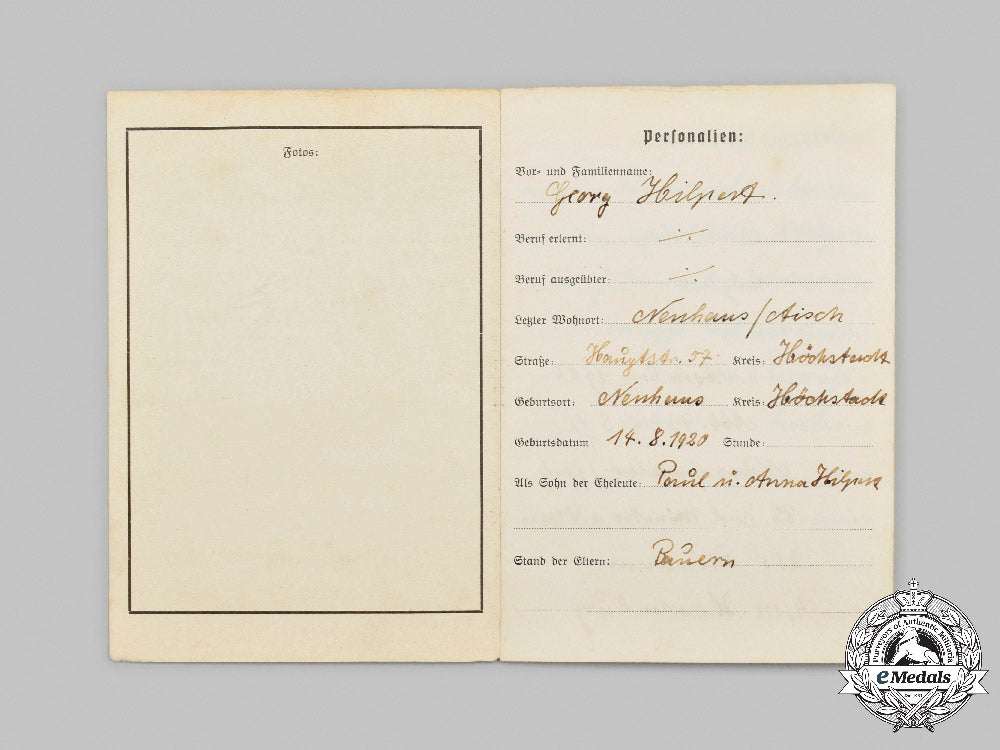 Fotos:
Personalien:
Vor- und Familienname:
Georg Hilpert.
Beruf erlernt: ./.
Beruf ausgeübter: ./.
Letzter Wohnort: Neuhaus/Aisch
Straße: Hauptstr. 57 Kreis: Höchstadt
Geburtsort: Neuhaus Kreis: Höchstadt
Geburtsdatum 14.8.1920 Stunde:
Als Sohn der Eheleute: Paul u. Anna Hilpert
Stand der Eltern: Bauern
Purveyors of Authentic Militaria
eMedals